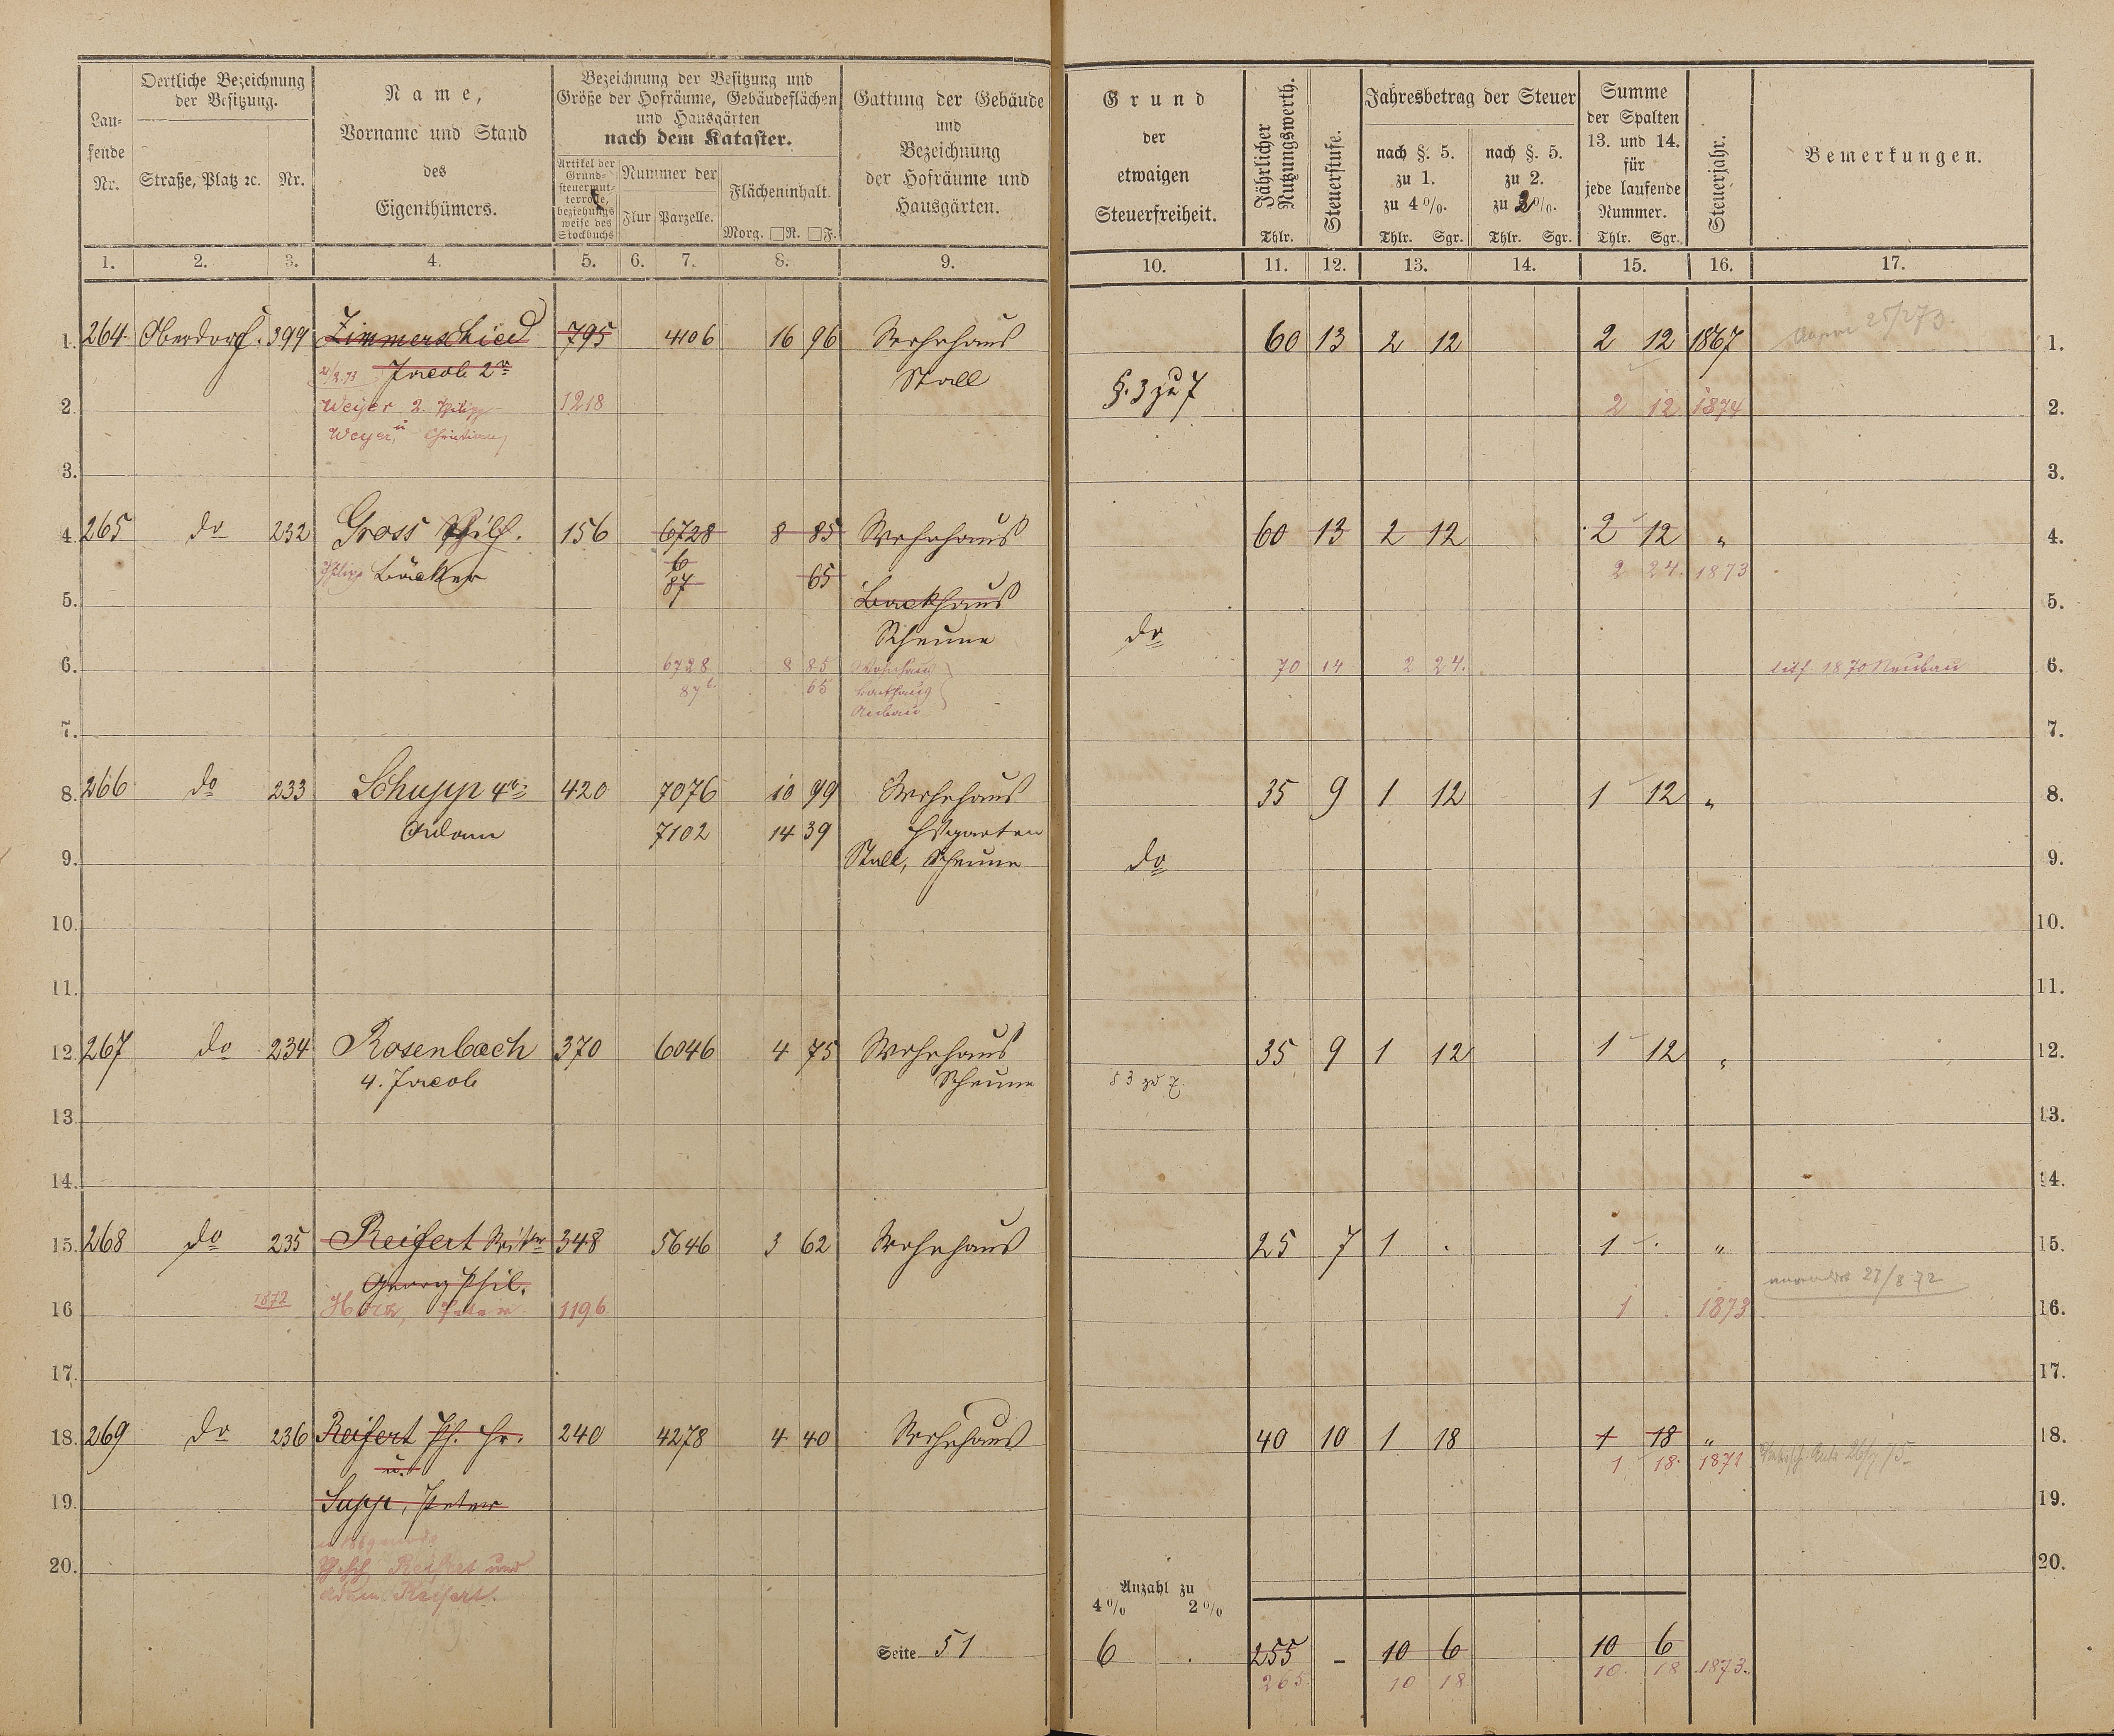 Lau-
fende
Nr.
Oertliche Bezeichnung
der Besitzung.
Straße, Platz ꝛc. Nr.
Name,
Vorname und Stand
des
Eigenthümers.
Bezeichnung der Besitzung und
Größe der Hofräume, Gebäudeflächen
und Hausgärten
nach dem Kataster.
Artikel der
Grund-
steuermut-
terrolle,
beziehungs
weise des
Stockbuchs
Nummer der
Flur Parzelle.
Flächeninhalt.
Morg. □R. □F.
Gattung der Gebäude
und
Bezeichnung
der Hofräume und
Hausgärten.
Grund
der
etwaigen
Steuerfreiheit.
Jährlicher
Nutzungswerth.
Thlr.
Steuerstufe.
Jahresbetrag der Steuer
nach §. 5.
zu 1.
zu 4%.
Thlr. Sgr.
nach §. 5.
zu 2.
zu 2%.
Thlr. Sgr.
Summe
der Spalten
13. und 14.
für
jede laufende
Nummer.
Thlr. Sgr.
Steuerjahr.
Bemerkungen.
1. 2. 3. 4. 5. 6. 7. 8. 9. 10. 11. 12. 13. 14. 15. 16. 17.
1. 264 Oberdorf. 399 Zimmerschied 795 4106 16 96 Wohnhaus 60 13 2 12 2 12 1867 1.
Jacob 2r Stall §. 3 zu 7
2. Weyer 2. Philipp 1218 2 12 1874 2.
u
Weyer, Christian
3. 3.
4. 265 do 232 Gross Phil. 156 6728 8 85 Wohnhaus 60 13 2 12 2 12 " 4.
Philipp Bäcker 6 87 65 2 24. 1873
5. Backhaus 5.
Scheune do
6. 6728 8 85 Wohnhaus 70 14 2 24. 1870 Neubau 6.
87 6. 65 Backhaus
Anbau
7. 7.
8. 266 do 233 Schupp 4r 420 7076 10 99 Wohnhaus 35 9 1 12 1 12 " 8.
Adam 7102 14 39 Hsgarten
9. Stall, Scheune do 9.
10. 10.
11. 11.
12. 267 do 234 Rosenbach 370 6046 4 75 Wohnhaus 35 9 1 12 1 12 " 12.
4. Jacob Scheune § 3 zu 7.
13. 13.
14. 14.
15. 268 do 235 Reifert 348 5646 3 62 Wohnhaus 25 7 1 . 1 . " 15.
Georg Phil. 27/8 72
16 1872 Peter 1196 1 . 1873 16.
17. 17.
18. 269 do 236 Reifert Ph. Hr. 240 4278 4 40 Wohnhaus 40 10 1 18 1 18 " 18.
u. 1 18. 1871
19. Supp, Peter 19.
20. Reifert und 20.
Reifert.
Anzahl zu
4% 2%
Seite 51 6 . 255 – 10 6 10 6
265 10 18 10. 18 1873.